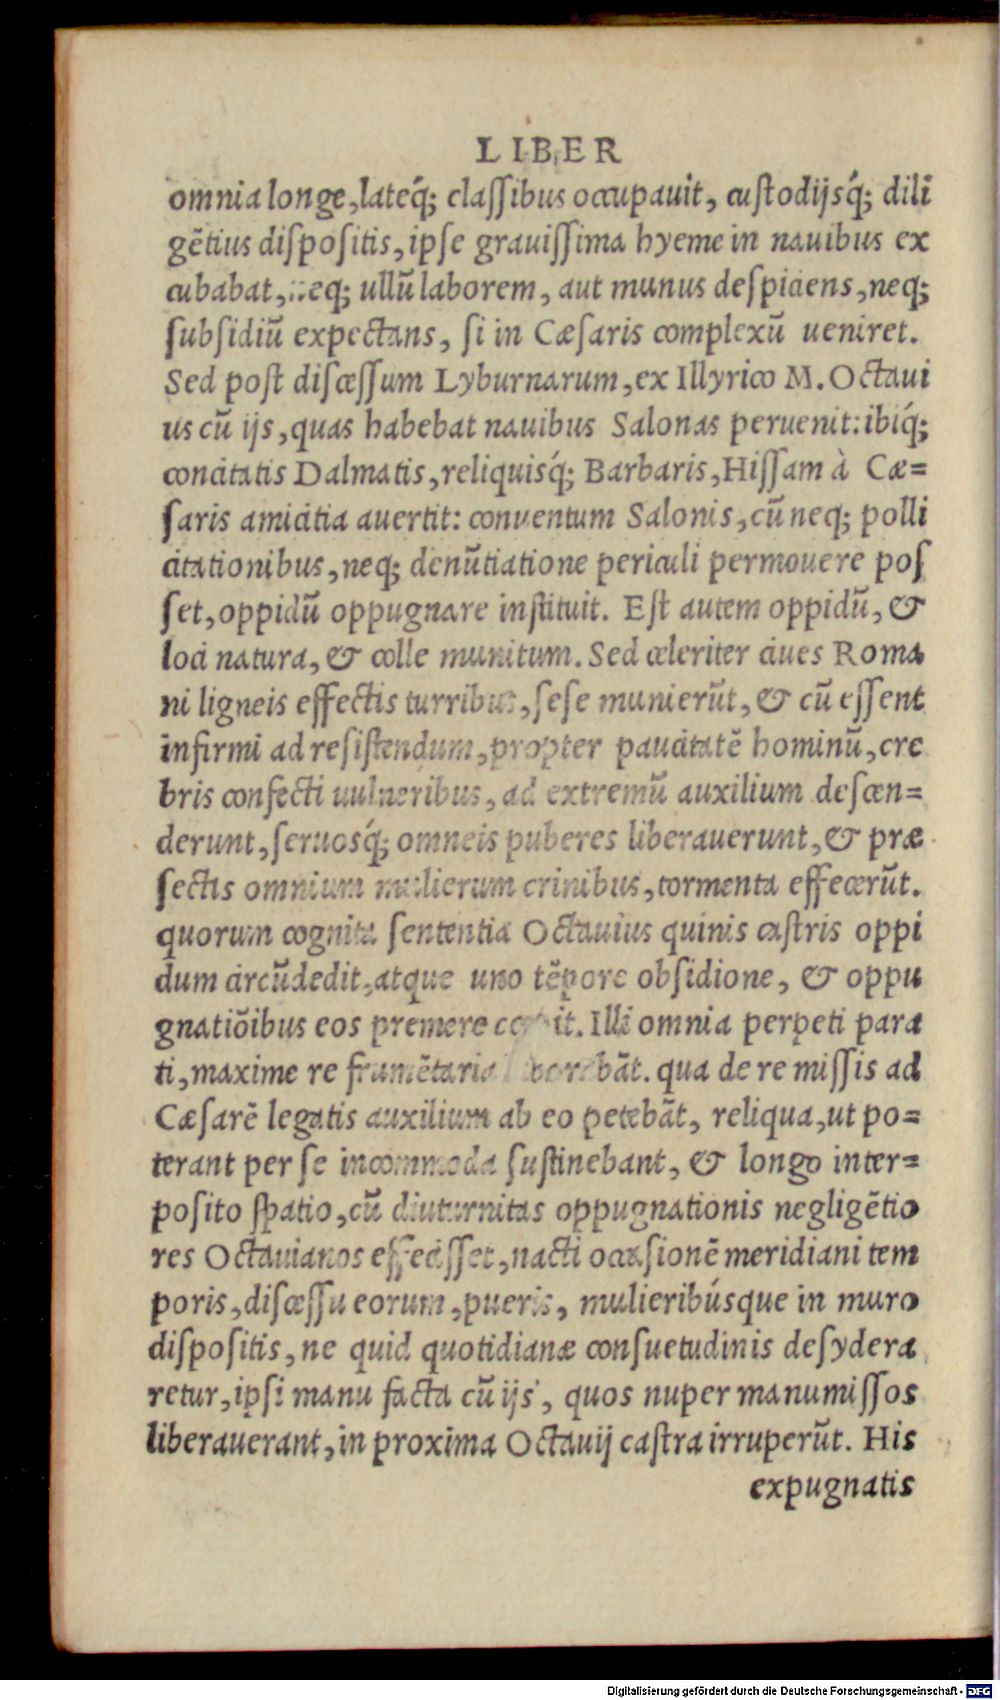 LIBER
omnia longe, lateq́; classibus occupauit, custodijsq́; dili
gẽtius dispositis, ipse grauissima hyeme in nauibus ex
cubabat, neq; ullũ laborem, aut munus despiciens, neq;
subsidiũ expectans, si in Cæsaris complexũ ueniret.
Sed post discessum Lyburnarum, ex Illyrico M. Octaui
us cũ ijs, quas habebat nauibus Salonas peruenit: ibiq́;
concitatis Dalmatis, reliquisq́; Barbaris, Hissam à Cæ=
saris amicitia auertit: conuentum Salonis, cũ neq; polli
citationibus, neq; denũtiatione periculi permouere pos
set, oppidũ oppugnare instituit. Est autem oppidũ, &
loci natura, & colle munitum. Sed celeriter ciues Roma
ni ligneis effectis turribus, sese munierũt, & cũ essent
infirmi ad resistendum, propter paucitatẽ hominũ, cre
bris confecti uulneribus, ad extremũ auxilium descen=
derunt, seruosq́; omneis puberes liberauerunt, & præ
sectis omnium mulierum crinibus, tormenta effecerũt.
quorum cognita sententia Octauius quinis castris oppi
dum circũdedit, atque uno tẽpore obsidione, & oppu
gnatiõibus eos premere cœpit. Illi omnia perpeti para
ti, maxime re frumẽtaria laborabãt. qua de re missis ad
Cæsarẽ legatis auxilium ab eo petebãt, reliqua, ut po=
terant per se incommoda sustinebant, & longo inter=
posito spatio, cũ diuturnitas oppugnationis negligẽtio
res Octauianos effecisset, nacti occasionẽ meridiani tem
poris, discessu eorum, pueris, mulieribúsque in muro
dispositis, ne quid quotidianæ consuetudinis desydera
retur, ipsi manu facta cũ ijs, quos nuper manumissos
liberauerant, in proxima Octauij castra irruperũt. His
expugnatis
Digitalisierung gefördert durch die Deutsche Forschungsgemeinschaft - DFG